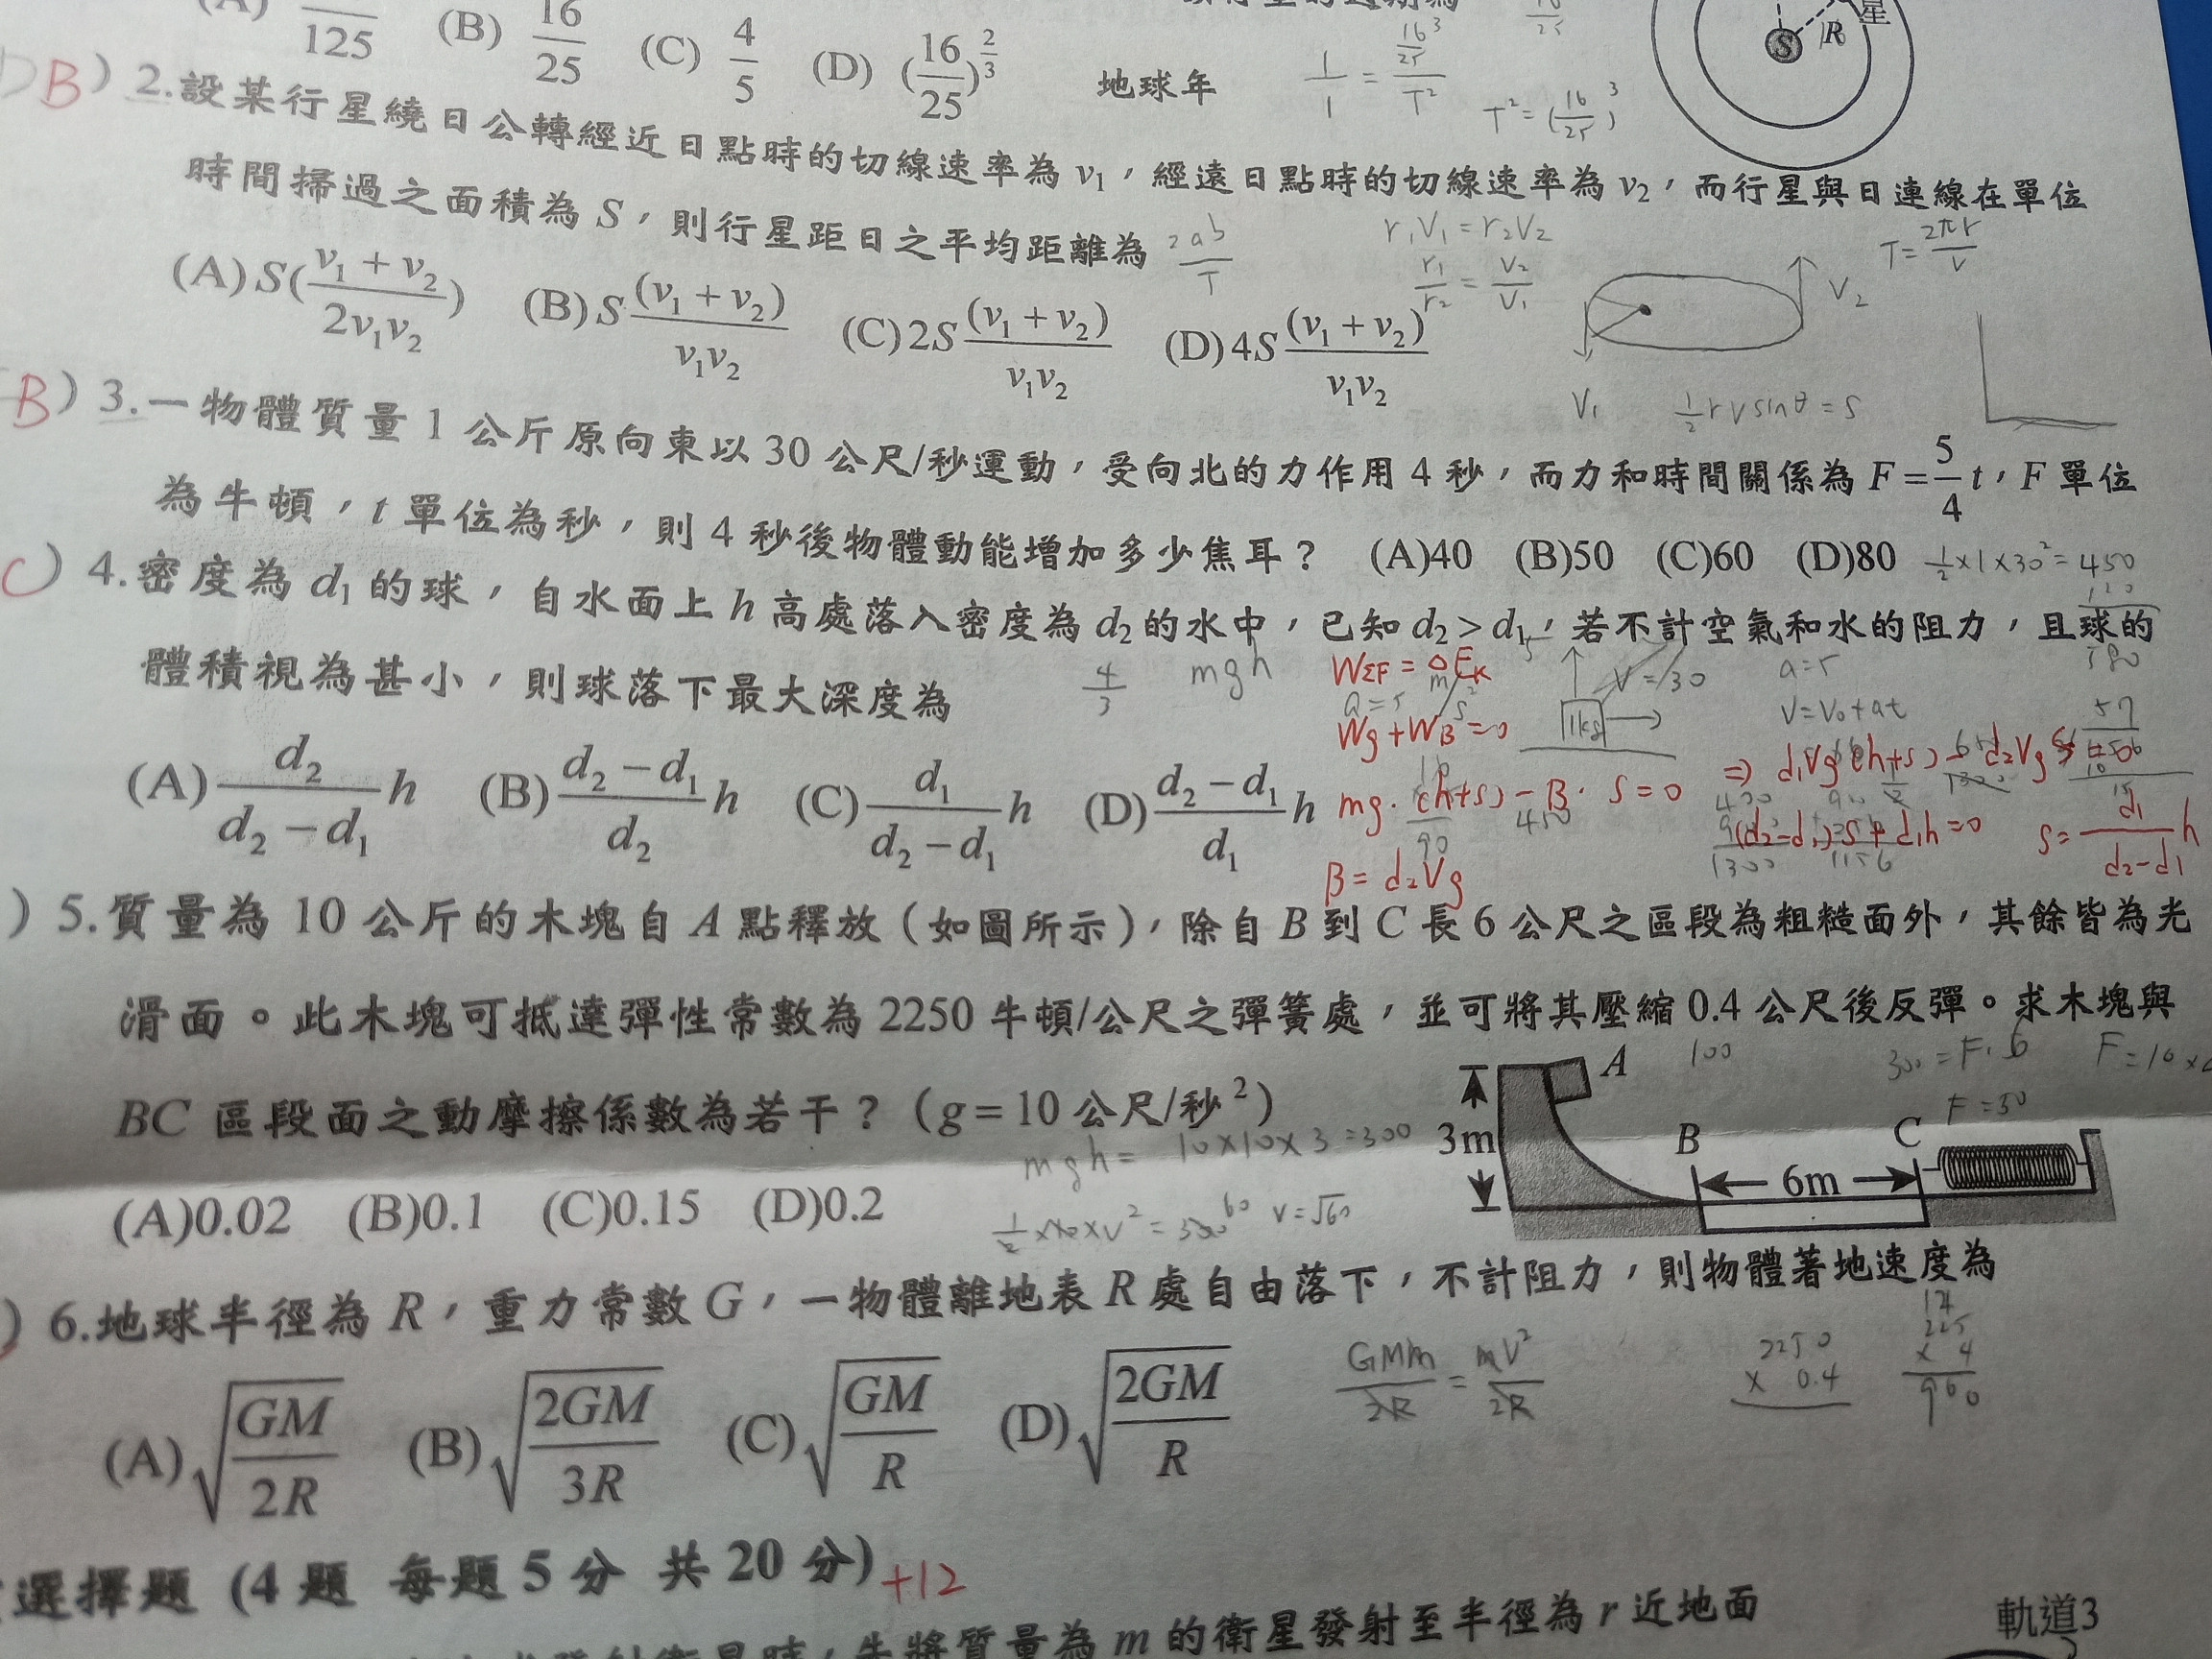 125 (B) 16/25 (C) 4/5 (D) (16/25)^(2/3) 地球年
1/1 = (16/25)^3/T² T² = (16/25)^3
S R 星
B) 2.設某行星繞日公轉經近日點時的切線速率為 v₁，經遠日點時的切線速率為 v₂，而行星與日連線在單位
時間掃過之面積為 S，則行星距日之平均距離為
2ab/T r₁V₁=r₂V₂ T=2πr/V
r₁/r₂ = V₂/V₁ V₂
(A) S((v₁+v₂)/(2v₁v₂)) (B) S (v₁+v₂)/(v₁v₂) (C) 2S (v₁+v₂)/(v₁v₂) (D) 4S (v₁+v₂)/(v₁v₂)
V₁ ½rvsinθ=S
B) 3.一物體質量 1 公斤原向東以 30 公尺/秒運動，受向北的力作用 4 秒，而力和時間關係為 F = 5/4 t，F 單位
為牛頓，t 單位為秒，則 4 秒後物體動能增加多少焦耳？ (A)40 (B)50 (C)60 (D)80
½×1×30²=450
C) 4.密度為 d₁ 的球，自水面上 h 高處落入密度為 d₂ 的水中，已知 d₂ > d₁，若不計空氣和水的阻力，且球的
體積視為甚小，則球落下最大深度為
4/3 mgh W_ΣF = ΔE_K V=30 a=5
Wg+W_B=0 1kg V=V₀+at
(A) d₂/(d₂−d₁) h (B) (d₂−d₁)/d₂ h (C) d₁/(d₂−d₁) h (D) (d₂−d₁)/d₁ h
mg·(h+s)−B·s=0 ⇒ d₁Vg(h+s)−d₂Vgs=0
B=d₂Vg (d₂-d₁)s+d₁h=0 s=d₁/(d₂-d₁) h
) 5.質量為 10 公斤的木塊自 A 點釋放（如圖所示），除自 B 到 C 長 6 公尺之區段為粗糙面外，其餘皆為光
滑面。此木塊可抵達彈性常數為 2250 牛頓/公尺之彈簧處，並可將其壓縮 0.4 公尺後反彈。求木塊與
BC 區段面之動摩擦係數為若干？（g = 10 公尺/秒²）
100 300=F·6 F=50
mgh= 10×10×3=300
A 3m B 6m C
(A)0.02 (B)0.1 (C)0.15 (D)0.2
½×10×V²=300 60 V=√60
) 6.地球半徑為 R，重力常數 G，一物體離地表 R 處自由落下，不計阻力，則物體著地速度為
GMm/2R = mV²/2R
2250 × 0.4
225 × 4 900
(A) √(GM/2R) (B) √(2GM/3R) (C) √(GM/R) (D) √(2GM/R)
選擇題 (4 題 每題 5 分 共 20 分) +12
先將質量為 m 的衛星發射至半徑為 r 近地面
軌道3